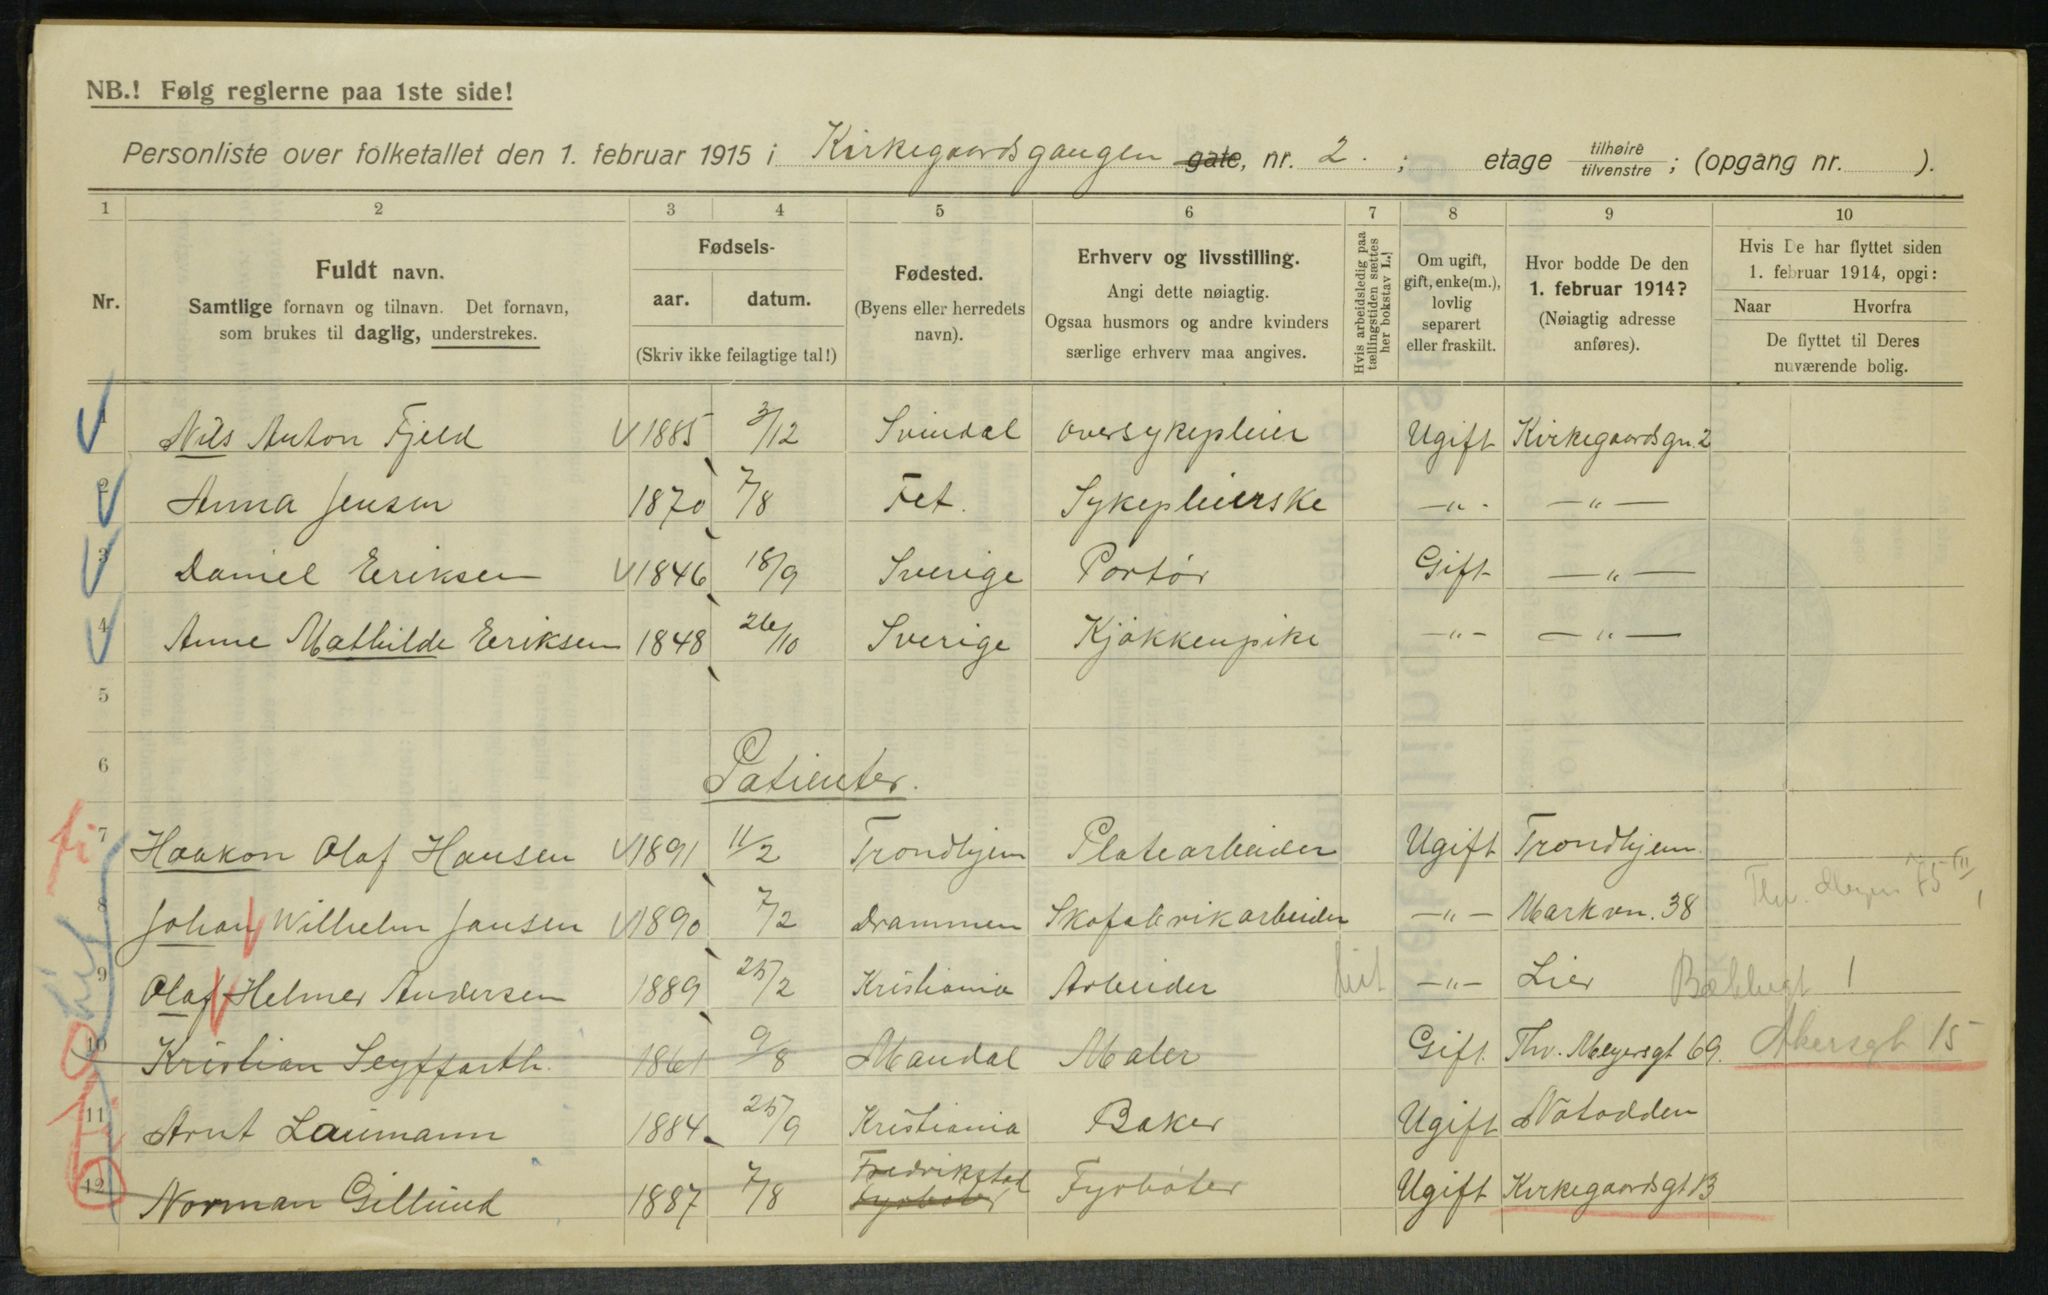 NB.! Følg reglerne paa 1ste side!
Personliste over folketallet den 1. februar 1915 i Kirkegaardsgangen gate, nr. 2. ; etage tilhøire tilvenstre ; (opgang nr. ).
1 2 3 4 5 6 7 8 9 10
Nr.
Fuldt navn.
Samtlige fornavn og tilnavn. Det fornavn,
som brukes til daglig, understrekes.
Fødsels-
aar. datum.
(Skriv ikke feilagtige tal!)
Fødested.
(Byens eller herredets
navn).
Erhverv og livsstilling.
Angi dette nøiagtig.
Ogsaa husmors og andre kvinders
særlige erhverv maa angives.
Hvis arbeidsledig paa
tællingstiden sættes
her bokstav L.)
Om ugift,
gift, enke(m.),
lovlig
separert
eller fraskilt.
Hvor bodde De den
1. februar 1914?
(Nøiagtig adresse
anføres).
Hvis De har flyttet siden
1. februar 1914, opgi:
Naar Hvorfra
De flyttet til Deres
nuværende bolig.
1 Nils Anton Fjeld 1885 3/12 Svindal Oversykepleier Ugift Kirkegaardsgn. 2
2 Anna Jensen 1870 7/8 Fet. Sykepleierske —"— —"—
3 Daniel Eriksen 1846 18/9 Sverige Portør Gift —"—
4 Anne Mathilde Eriksen 1848 26/10 Sverige Kjøkkenpike —"— —"—
5
6 Patienter.
7 Haakon Olaf Hansen 1891 11/2 Trondhjem Platearbeider Ugift Trondhjem.
8 Johan Wilhelm Jansen 1890 7/2 Drammen Skofabrikarbeider —"— Markvn. 38 Thv. Meyers 75 III
9 Olaf Helmer Andersen 1889 25/2 Kristiania Arbeider —"— Lier 1
10 Kristian Seyffarth. 1861 9/8 Mandal Maler Gift Thv. Meyersgt 69. Akersgt 15
11 Arnt Laumann 1884 25/9 Kristiania Baker Ugift Notodden
12 Norman Gillund 1887 7/8 Fredrikstad Fyrbøter Fyrbøter Ugift Kirkegaardsgt 13